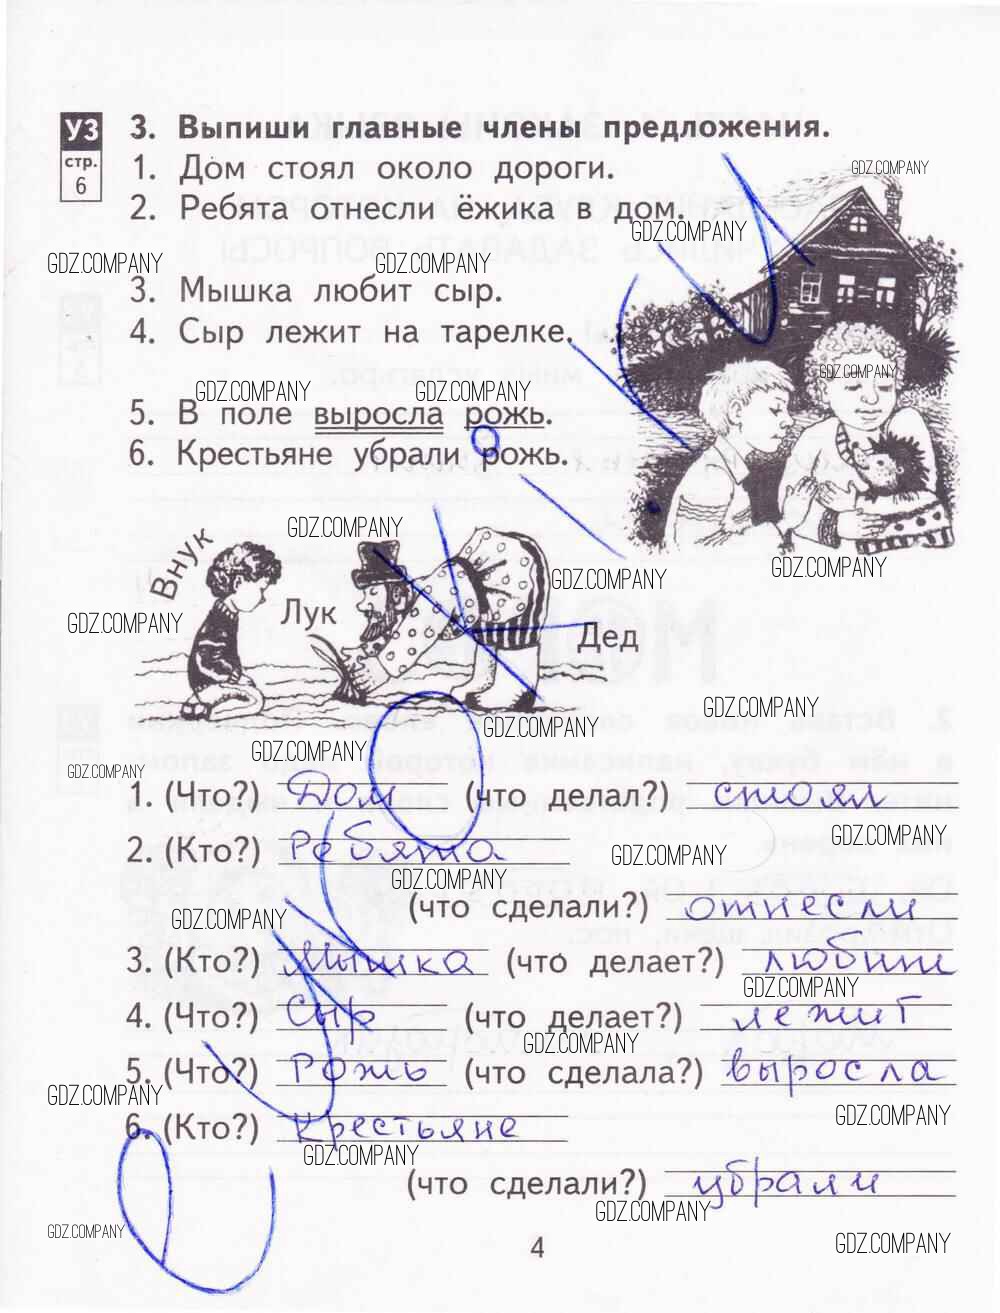 УЗ
стр.
6
3. Выпиши главные члены предложения.
1. Дом стоял около дороги.
GDZ.COMPANY
2. Ребята отнесли ёжика в дом.
GDZ.COMPANY
GDZ.COMPANY GDZ.COMPANY
3. Мышка любит сыр.
4. Сыр лежит на тарелке.
GDZ.COMPANY
GDZ.COMPANY GDZ.COMPANY
5. В поле выросла рожь.
6. Крестьяне убрали рожь.
GDZ.COMPANY
Внук
GDZ.COMPANY
GDZ.COMPANY
Лук
GDZ.COMPANY
Дед
GDZ.COMPANY
GDZ.COMPANY
GDZ.COMPANY
GDZ.COMPANY
1. (Что?) Дом (что делал?) стоял
GDZ.COMPANY
2. (Кто?) Ребята
GDZ.COMPANY
GDZ.COMPANY
(что сделали?) отнесли
GDZ.COMPANY
3. (Кто?) Мышка (что делает?) любит
GDZ.COMPANY
4. (Что?) Сыр (что делает?) лежит
GDZ.COMPANY
5. (Что?) Рожь (что сделала?) выросла
GDZ.COMPANY
GDZ.COMPANY
6. (Кто?) Крестьяне
GDZ.COMPANY
(что сделали?) убрали
GDZ.COMPANY
GDZ.COMPANY
4
GDZ.COMPANY